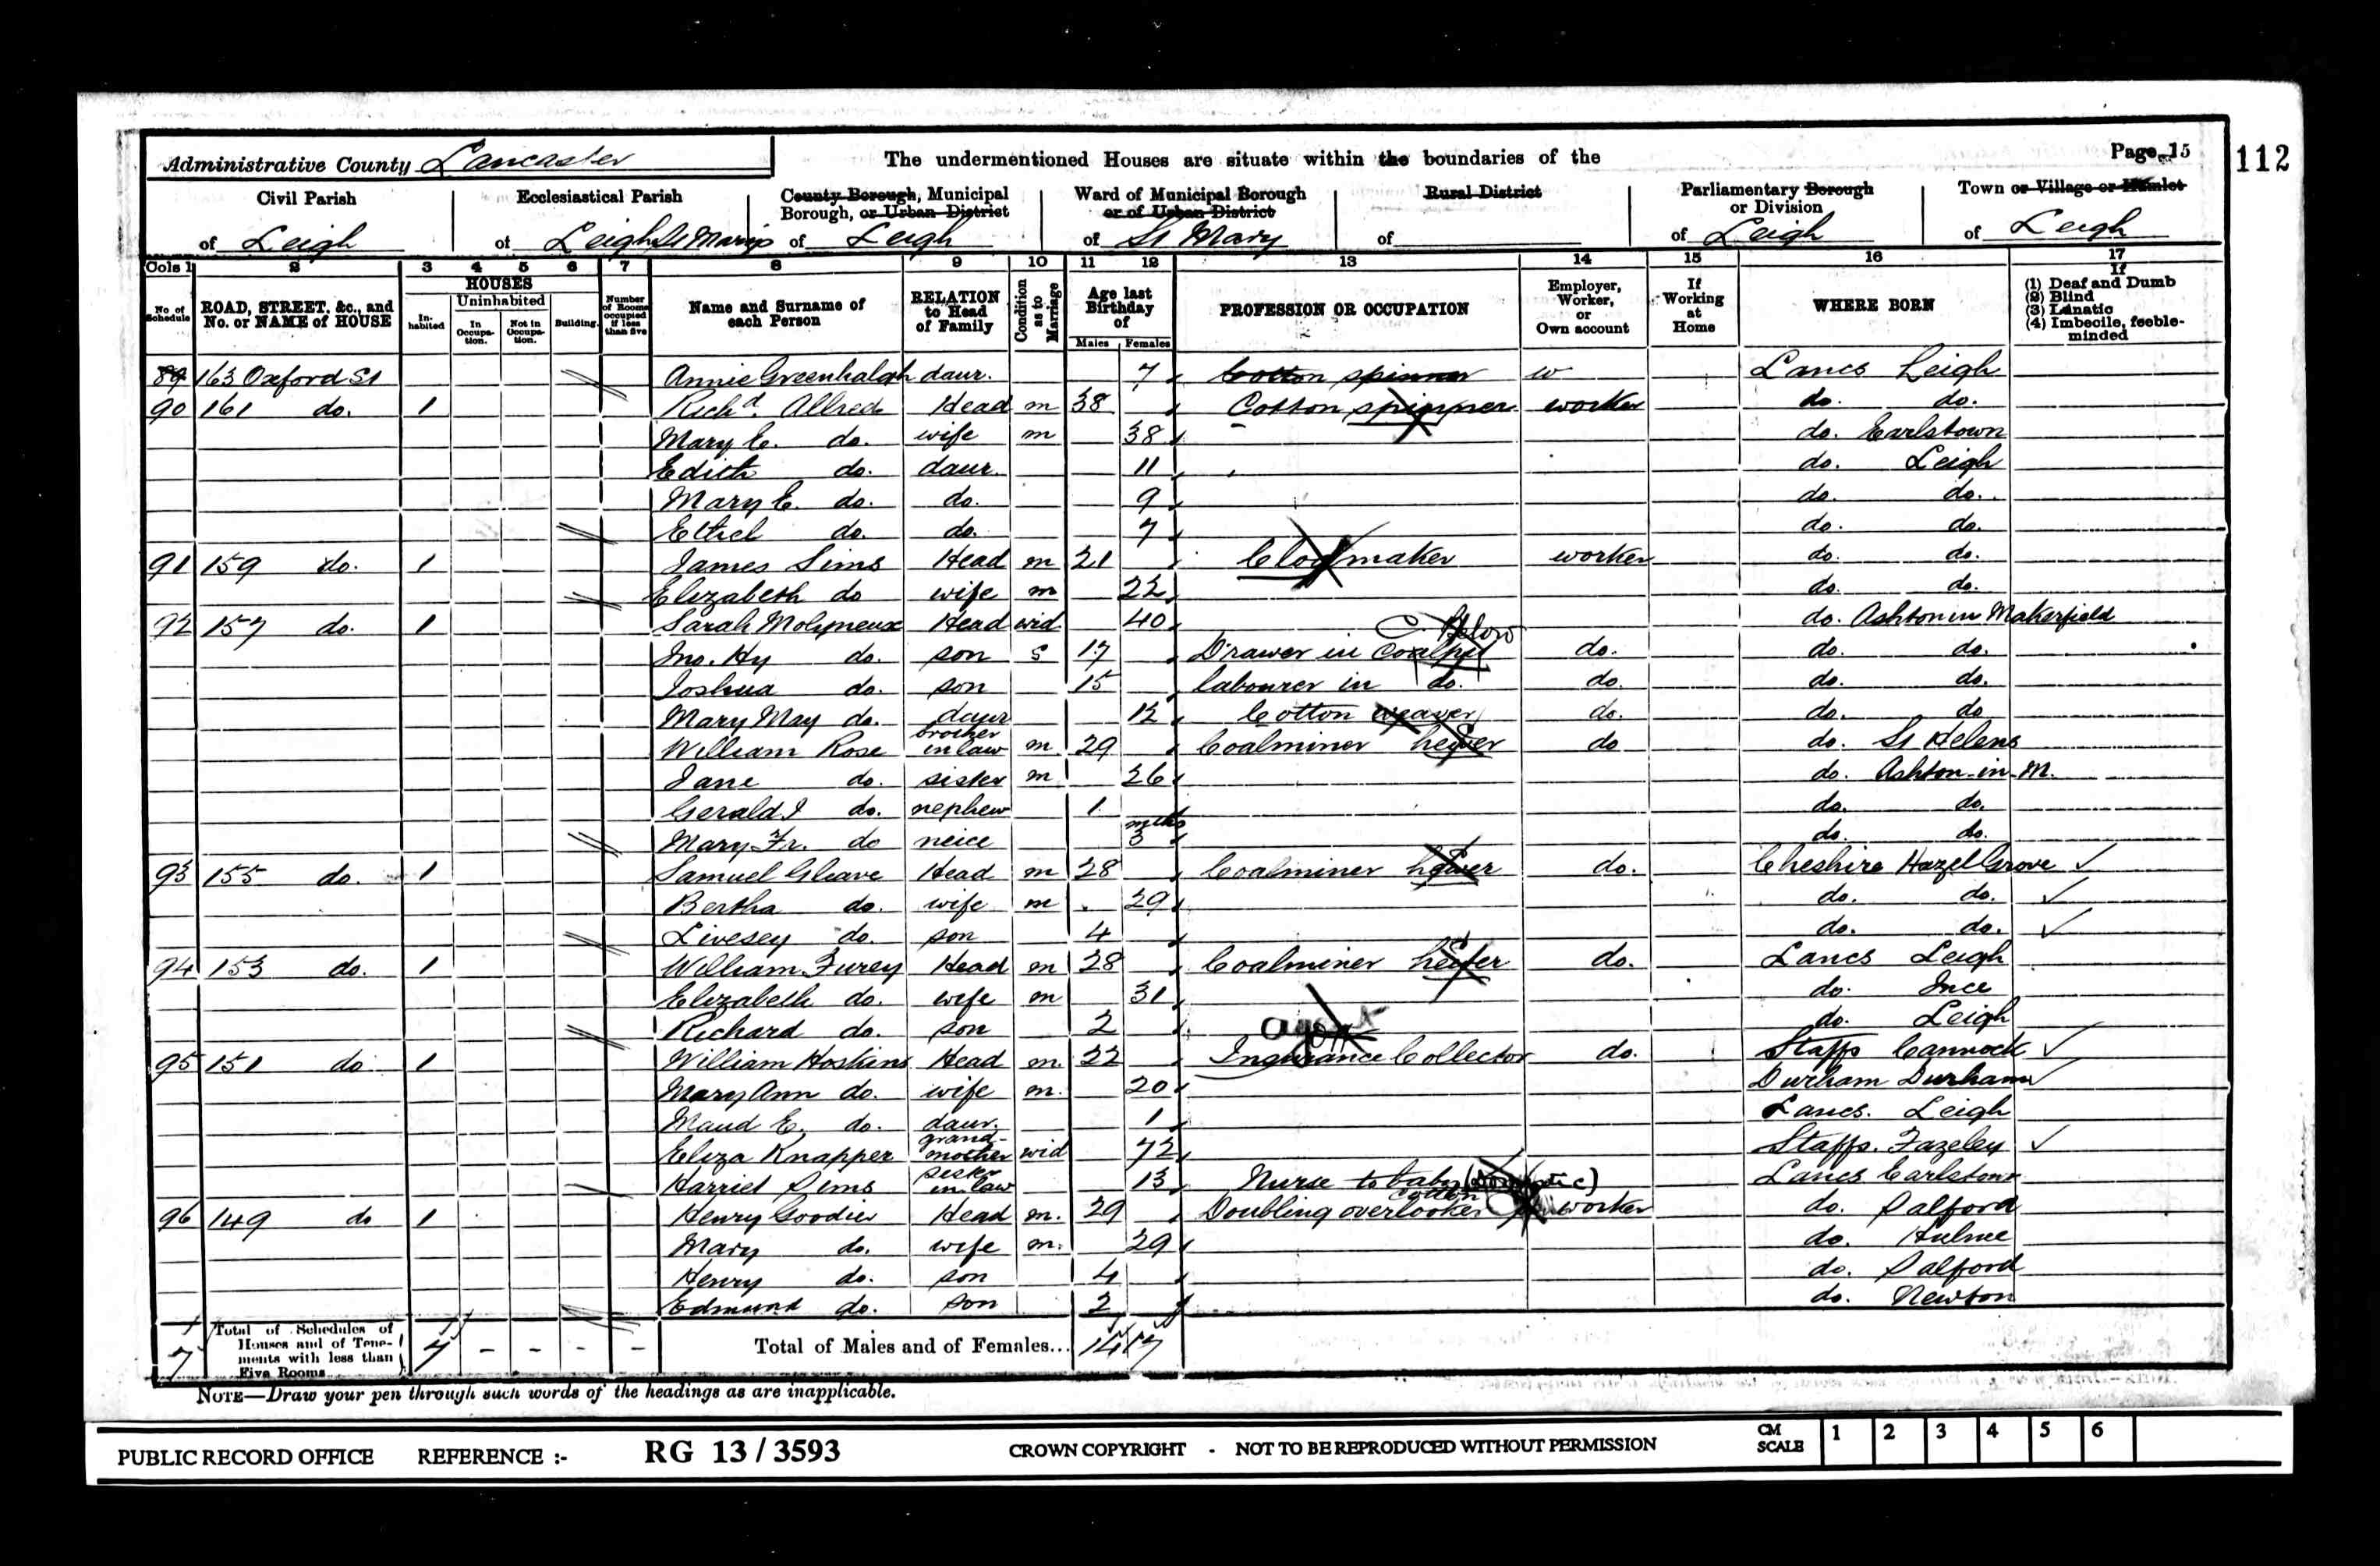 Administrative County Lancaster
The undermentioned Houses are situate within the boundaries of the
Page 15
112
Civil Parish of Leigh
Ecclesiastical Parish of Leigh St Marys
County Borough, Municipal Borough, or Urban District of Leigh
Ward of Municipal Borough or of Urban District of St Mary
Rural District of
Parliamentary Borough or Division of Leigh
Town or Village or Hamlet of Leigh
Cols 1 2 3 4 5 6 7 8 9 10 11 12 13 14 15 16 17
No of Schedule
ROAD, STREET, &c., and No. or NAME of HOUSE
HOUSES
In-habited
Uninhabited
In Occupa-tion.
Not in Occupa-tion.
Building.
Number of Rooms occupied if less than five
Name and Surname of each Person
RELATION to Head of Family
Condition as to Marriage
Age last Birthday of
Males Females
PROFESSION OR OCCUPATION
Employer, Worker, or Own account
If Working at Home
WHERE BORN
If
(1) Deaf and Dumb
(2) Blind
(3) Lunatic
(4) Imbecile, feeble-minded
89 163 Oxford St Annie Greenhalgh daur. 7 Cotton spinner w Lancs Leigh
90 161 do. 1 Richd. Allred Head m 38 Cotton spinner worker do. do.
Mary E. do. wife m 38 do. Earlstown
Edith do. daur. 11 do. Leigh
Mary E. do. do. 9 do. do.
Ethel do. do. 7 do. do.
91 159 do. 1 James Sims Head m 21 Clogmaker worker do. do.
Elizabeth do wife m 22 do. do.
92 157 do. 1 Sarah Molyneux Head wid 40 do. Ashton in Makerfield
Jno. Hy do. son S 17 Drawer in Coalpit C. Below do. do. do.
Joshua do. son 15 labourer in do. do. do. do.
Mary May do. daur 12 Cotton weaver do. do. do
William Rose brother in law m 29 Coalminer hewer do do. St Helens
Jane do. sister m 26 do. Ashton-in-M.
Gerald J do. nephew 1 do. do.
Mary Fr. do neice mths 3 do. do.
93 155 do. 1 Samuel Gleave Head m 28 Coalminer hewer do. Cheshire Hazel Grove
Bertha do. wife m 29 do. do.
Livesey do. son 4 do. do.
94 153 do. 1 William Furey Head m 28 Coalminer hewer do. Lancs Leigh
Elizabeth do. wife m 31 do. Ince
Richard do. son 2 do. Leigh
95 151 do 1 William Hoskins Head m. 22 Insurance Collector Agent do. Staffs Cannock
Mary Ann do. wife m. 20 Durham Durham
Maud E. do. daur. 1 Lancs. Leigh
Eliza Knapper grand-mother wid 72 Staffs. Fazeley
Harriet Sims sister in law 13 Nurse to baby (Domestic) Lancs Earlstown
96 149 do 1 Henry Goodier Head m. 29 Doubling overlooker cotton worker do. Salford
Mary do. wife m. 29 do. Hulme
Henry do. son 4 do. Salford
Edmund do. son 2 do. Newton
7 Total of Schedules of Houses and of Tene-ments with less than Five Rooms 7 - - - - Total of Males and of Females... 14 17
NOTE—Draw your pen through such words of the headings as are inapplicable.
PUBLIC RECORD OFFICE REFERENCE :- RG 13 / 3593 CROWN COPYRIGHT - NOT TO BE REPRODUCED WITHOUT PERMISSION CM SCALE 1 2 3 4 5 6